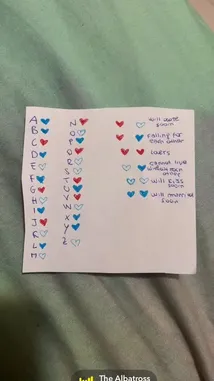 A
B
C
D
E
F
G
H
I
J
K
L
M
N
O
P
Q
R
S
T
U
V
W
X
Y
Z
will unite
soon
falling for
each other
lovers
cannot live
without each
other
will kiss
soon
will married
soon
The Albatross